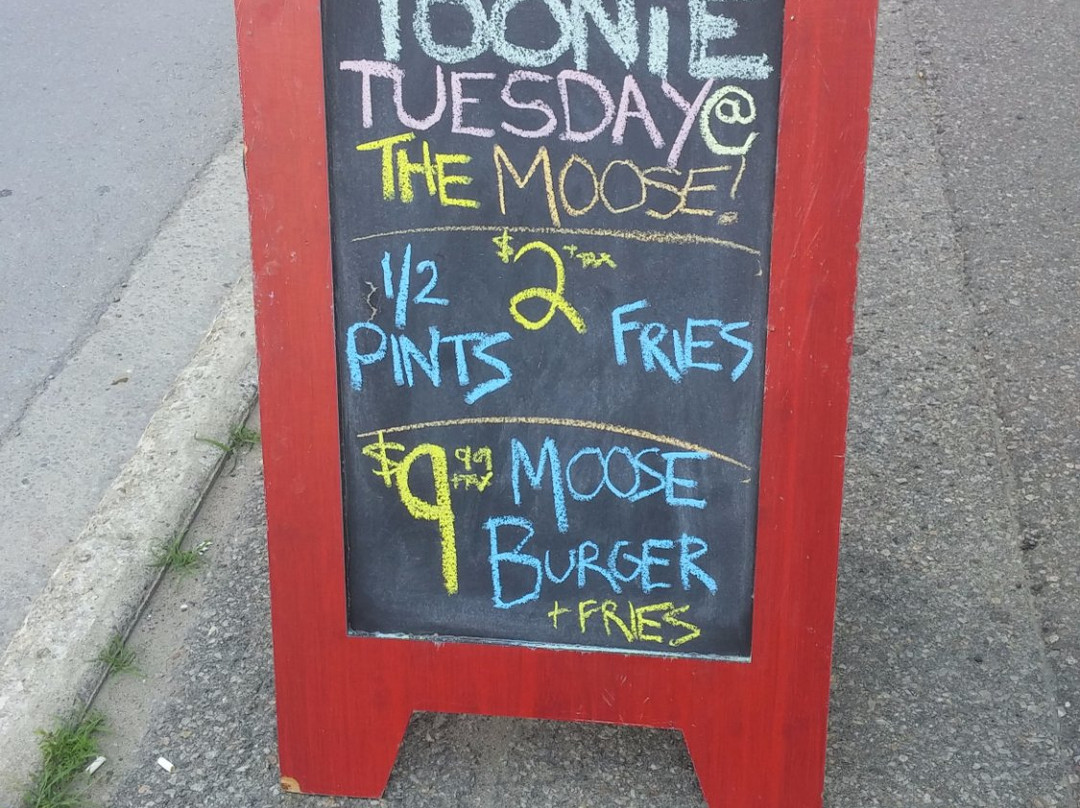 TOONIE
TUESDAY@
THE MOOSE!
1/2 $2 + tax
PINTS FRIES
$9.99 + tax MOOSE
BURGER
+ FRIES